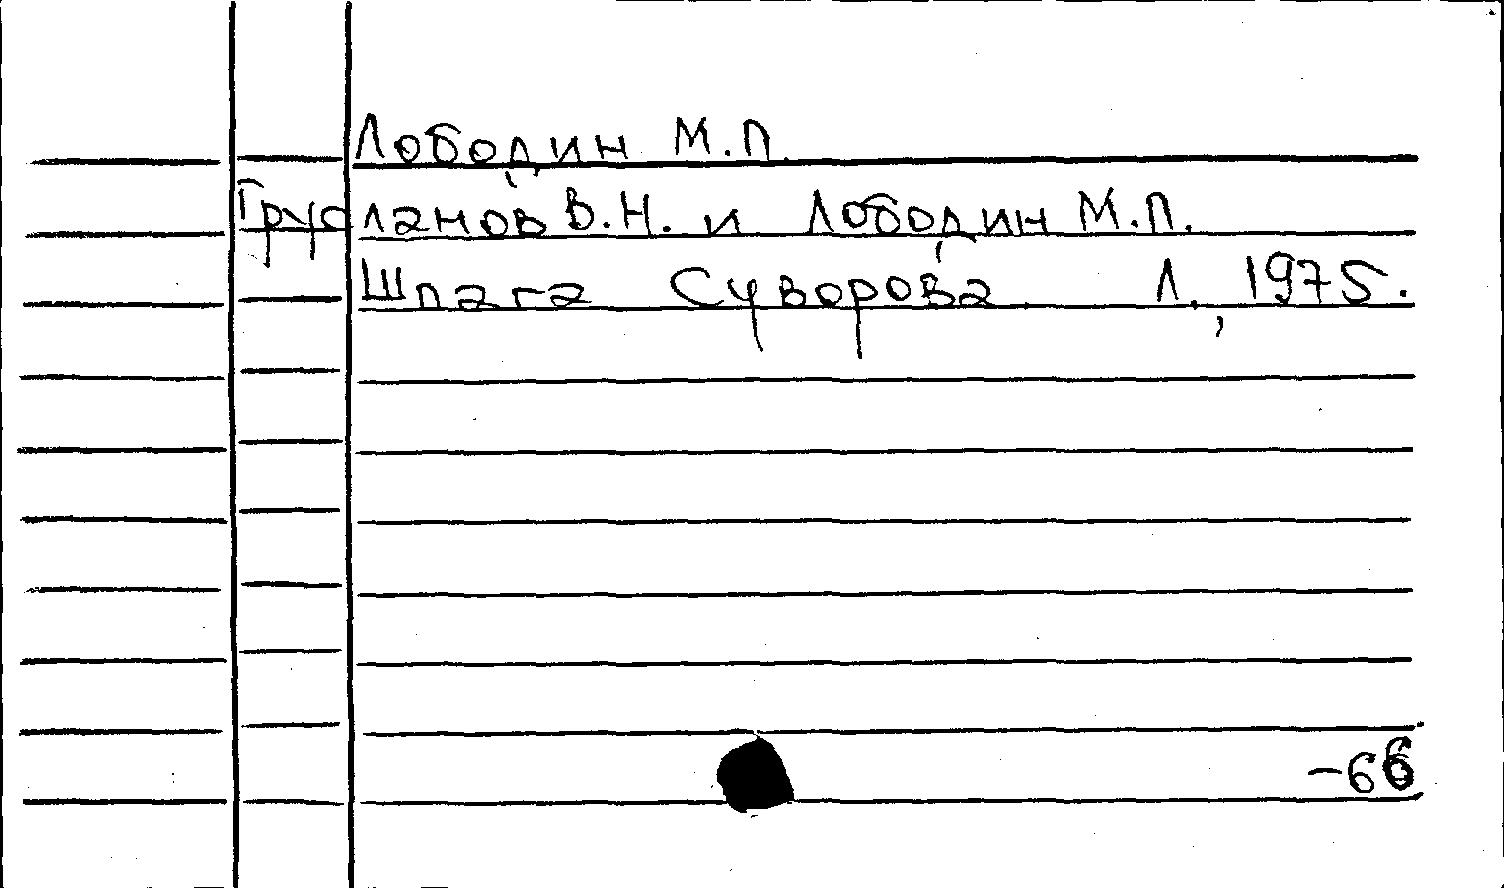 Лободин М.П.
Грусланов В.Н. и Лободин М.П.
Шпага Суворова Л., 1975.
-66